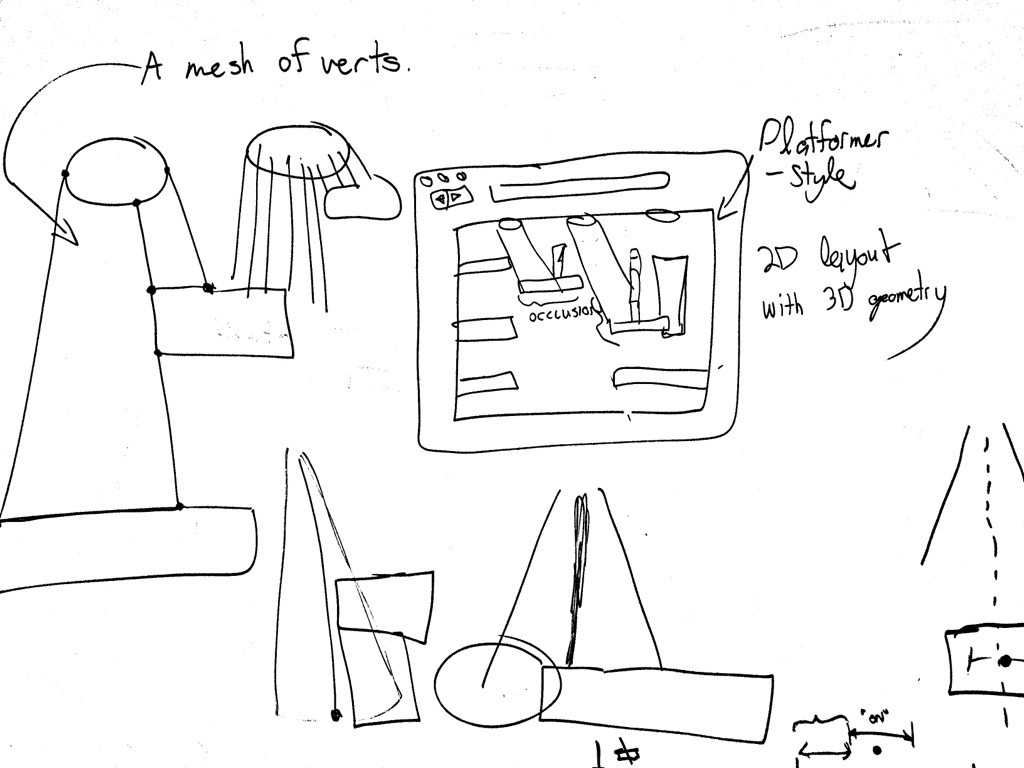 A mesh of verts.
Platformer
-Style
2D layout
with 3D geometry
occlusion
"on"